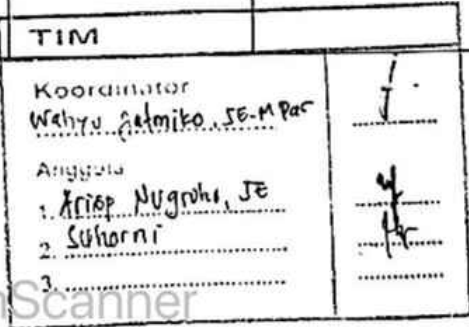 TIM
Koordinator
Wahyu Jatmiko, SE-M Par
Anggota
1. Arisp Nugroho, SE
2. Suharni
3.
Scanner